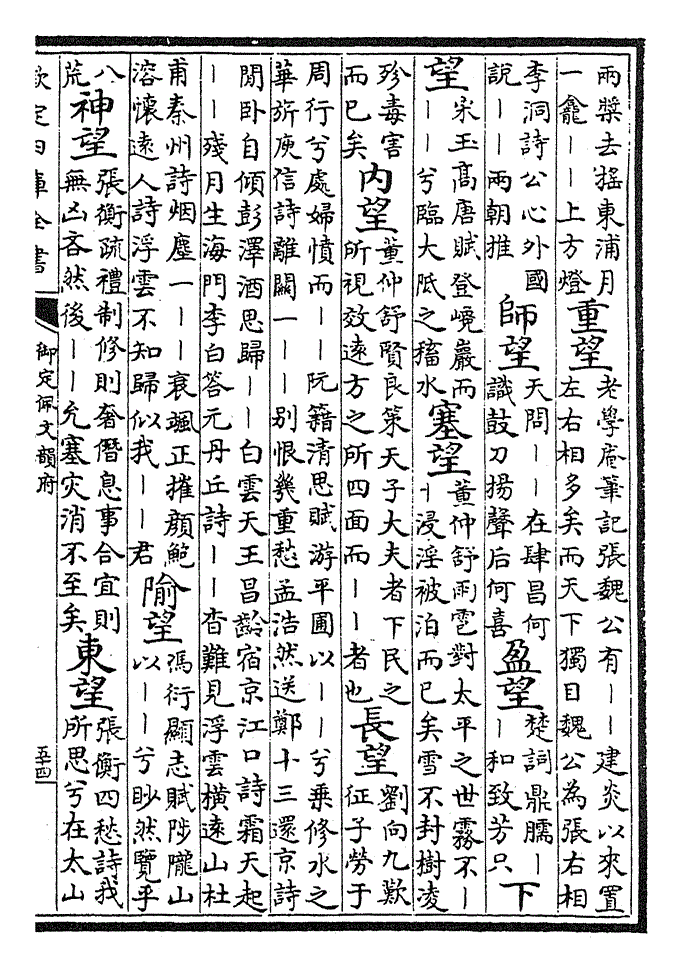 兩槳去搖東浦月
一龕——上方燈
重望
老學庵筆記張魏公有——建炎以來置
左右相多矣而天下獨目魏公為張右相
李洞詩公心外國
說——兩朝推
師望
天問——在肆昌何
識鼓刀揚聲后何喜
盈望
楚詞鼎臑—
—和致芳只
下
望
宋玉高唐賦登巉巖而
——兮臨大阺之稸水
塞望
董仲舒雨雹對太平之世霧不—
—浸淫被泊而已矣雪不封樹凌
殄毒害
而已矣
內望
董仲舒賢良策天子大夫者下民之
所視效遠方之所四面而——者也
長望
劉向九歎
征子勞于
周行兮處婦憤而——阮籍清思賦游平圃以——兮乘修水之
華旂庾信詩離關一———別恨幾重愁孟浩然送鄭十三還京詩
閒卧自傾彭澤酒思歸——白雲天王昌齡宿京江口詩霜天起
——殘月生海門李白答元丹丘詩——杳難見浮雲橫遠山杜
甫秦州詩烟塵一——衰颯正摧顏鮑
溶懷遠人詩浮雲不知歸似我——君
隃望
馮衍顯志賦陟隴山
以——兮眇然覽乎
八
荒
神望
張衡疏禮制修則奢僭息事合宜則
無凶咎然後——允塞灾消不至矣
東望
張衡四愁詩我
所思兮在太山
欽定四庫全書
御定佩文韻府
五十四